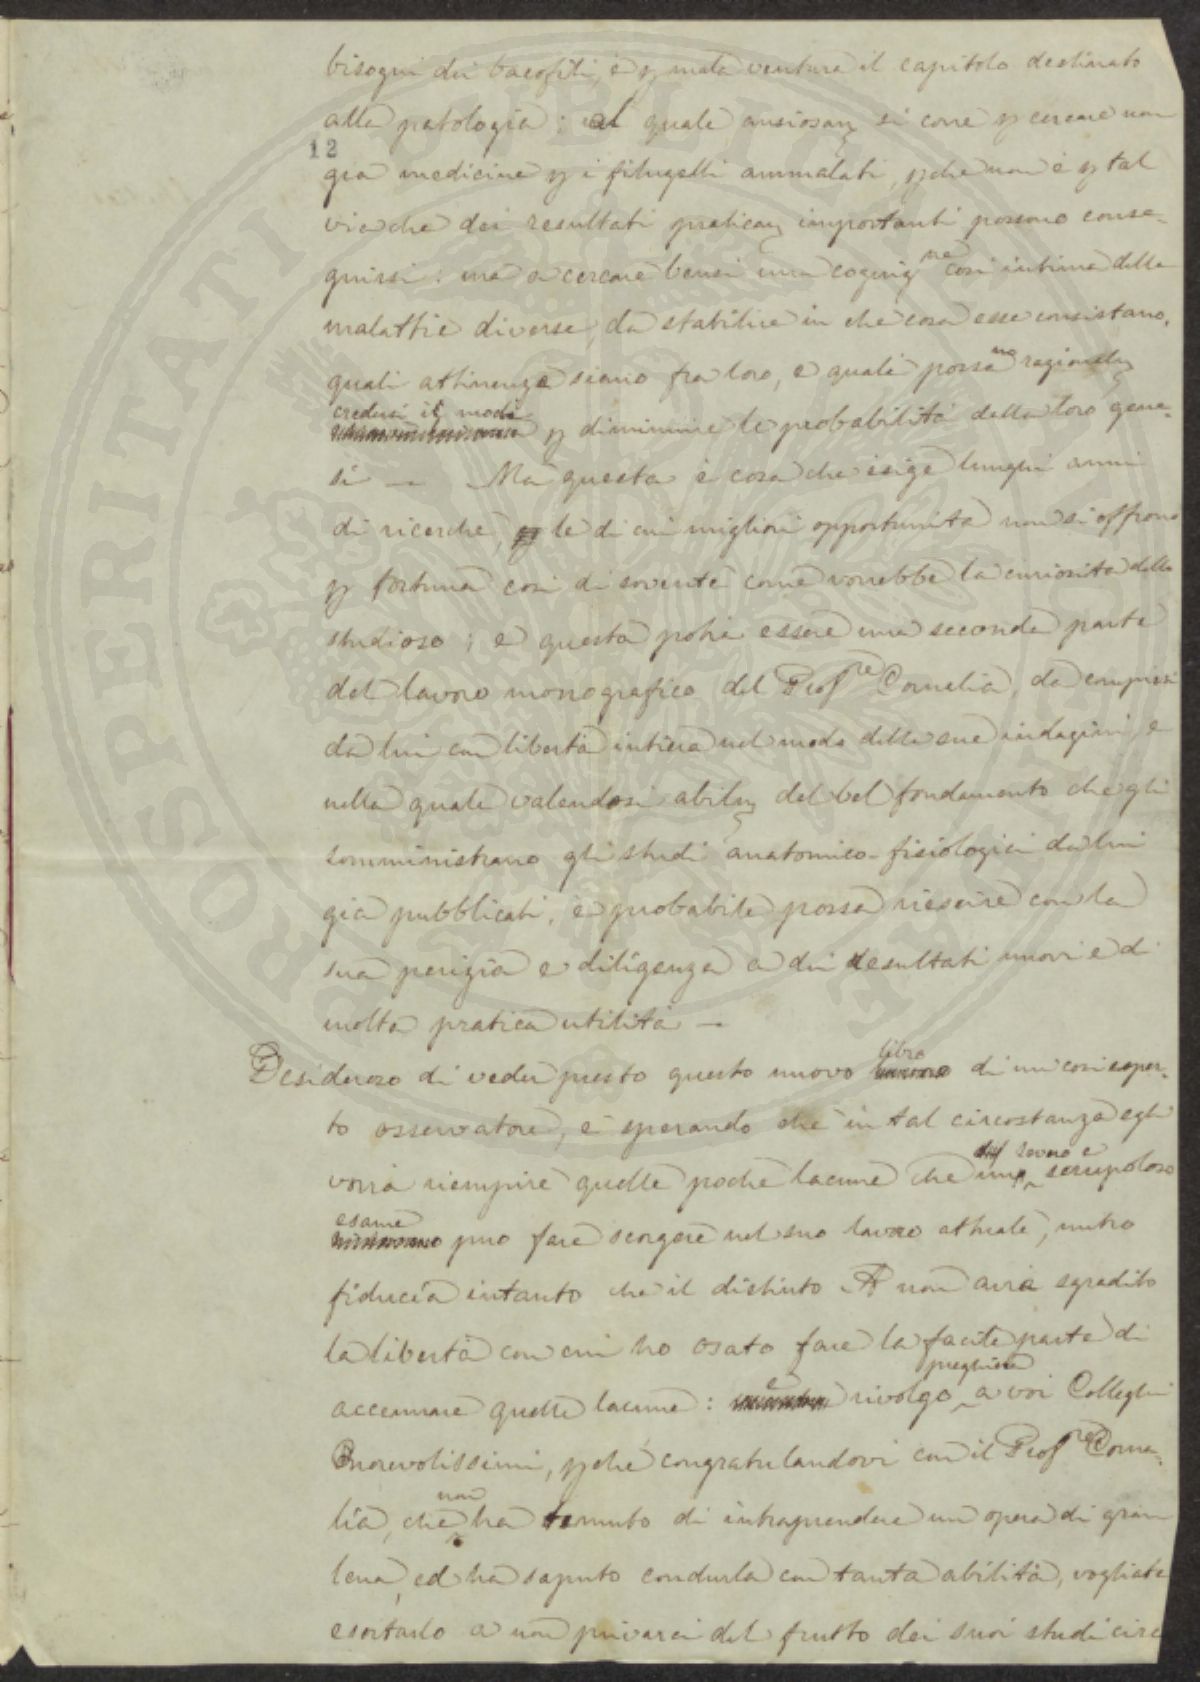 bisogni dei bacofili, è p mala ventura il capitolo destinato
alla patologia; al quale ansiosam si corre p cercare non
12
gia medicine p i filugelli ammalati, pchè non è p tal
via che dei resultati praticam importanti possono conse-
guirsi: ma a cercare bensi una cogniz ne così intima delle
malattie diverse, da stabilire in che cosa esse consistano,
quali attinenze siano fra loro, e quali possano ragionelm
credersi i modi
p diminuire le probabilità della loro gene-
si — Ma questa è cosa che esige lunghi anni
di ricerche, le di cui migliori opportunità non si offrono
p fortuna così di sovente come vorrebbe la curiosità dello
studioso; e questa potrà essere una seconda parte
del lavoro monografico del Prof re Cornalia, da compiersi
da lui con libertà intiera nel modo delle sue indagini, e
nella quale valendosi abilm del bel fondamento che gli
somministrano gli studi anatomico-fisiologici da lui
gia pubblicati, è probabile possa riescire con la
sua perizia e diligenza a dei resultati nuovi e di
molta pratica utilità —
libro
Desideroso di veder presto questo nuovo lavoro di un così esper-
to osservatore, e sperando che in tal circostanza egli
severo e
vorrà riempire quelle poche lacune che un scrupoloso
esame
può fare scorgere nel suo lavoro attuale, nutro
fiducia intanto che il distinto A non avrà sgradito
la libertà con cui ho osato fare la facile parte di
preghiera
accennare quelle lacune: e rivolgo a voi Colleghi
Onorevolissimi, pchè congratulandovi con il Prof re Corna-
non
lia, che ha temuto di intraprendere un opera di gran
lena, ed ha saputo condurla con tanta abilità, vogliate
esortarlo a non privarci del frutto dei suoi studi circ
PROSPERITATI PUBLICAE AUGENDAE